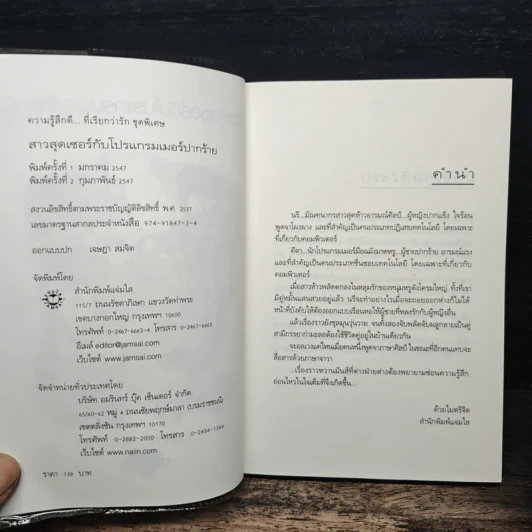 ความรู้สึกดี... ที่เรียกว่ารัก ชุดพิเศษ
สาวสุดเซอร์กับโปรแกรมเมอร์ปากร้าย
พิมพ์ครั้งที่ 1 มกราคม 2547
พิมพ์ครั้งที่ 2 กุมภาพันธ์ 2547
สงวนลิขสิทธิ์ตามพระราชบัญญัติลิขสิทธิ์ พ.ศ. 2537
เลขมาตรฐานสากลประจำหนังสือ 974-91847-3-4
ออกแบบปก เจษฎา สมจิต
จัดพิมพ์โดย
สำนักพิมพ์แจ่มใส
115/7 ถนนรัชดาภิเษก แขวงวัดท่าพระ
เขตบางกอกใหญ่ กรุงเทพฯ 10600
โทรศัพท์ 0-2467-6663-4 โทรสาร 0-2467-6665
อีเมล์ editor@jamsai.com
เว็บไซต์ www.jamsai.com
จัดจำหน่ายทั่วประเทศโดย
บริษัท อมรินทร์ บุ๊ค เซ็นเตอร์ จำกัด
65/60-62 หมู่ 4 ถนนชัยพฤกษ์มาลา (บรมราชชนนี)
เขตตลิ่งชัน กรุงเทพฯ 10170
โทรศัพท์ 0-2882-2000 โทรสาร 0-2434-1384
เว็บไซต์ www.naiin.com
ราคา 139 บาท
คำนำ
นรี...มัณฑนากรสาวสุดห้าวอารมณ์ศิลป์...ผู้หญิงปากแข็ง ใจร้อน
พูดจาโผงผาง และที่สำคัญเป็นคนประเภทปฏิเสธเทคโนโลยี โดยเฉพาะ
ที่เกี่ยวกับคอมพิวเตอร์
คีตา...นักโปรแกรมเมอร์มือฉมัง...ผู้ชายปากร้าย อารมณ์แรง
และที่สำคัญเป็นคนประเภทชื่นชอบเทคโนโลยี โดยเฉพาะที่เกี่ยวกับ
คอมพิวเตอร์
เมื่อสาวห้าวพลัดตกลงในหลุมรักของหนุ่มหรูดังโครมใหญ่ ทั้งที่เขา
มีคู่หมั้นแสนสวยอยู่แล้ว นรีจะทำอย่างไรเมื่อจะถอยออกห่างก็ไม่ได้
หน้าที่บังคับให้ต้องออกแบบเรือนหอให้ผู้ชายที่หลงรักกับผู้หญิงอื่น
แล้วเรื่องราวยังชุลมุนวุ่นวาย จนทั้งสองจับพลัดจับผลูกลายเป็นคู่
สามีภรรยากำมะลอต้องใช้ชีวิตคู่อยู่ในบ้านเดียวกัน
จะอลเวงแค่ไหนเมื่อคนหนึ่งพูดจาภาษาศิลป์ ในขณะที่อีกคนแทบจะ
สื่อสารด้วยภาษาจาวา
...เรื่องราวหวานมันส์ที่ต่างฝ่ายต่างต้องพยายามซ่อนความรู้สึก
อ่อนไหวในใจเต็มที่จึงเกิดขึ้น...
ด้วยไมตรีจิต
สำนักพิมพ์แจ่มใส